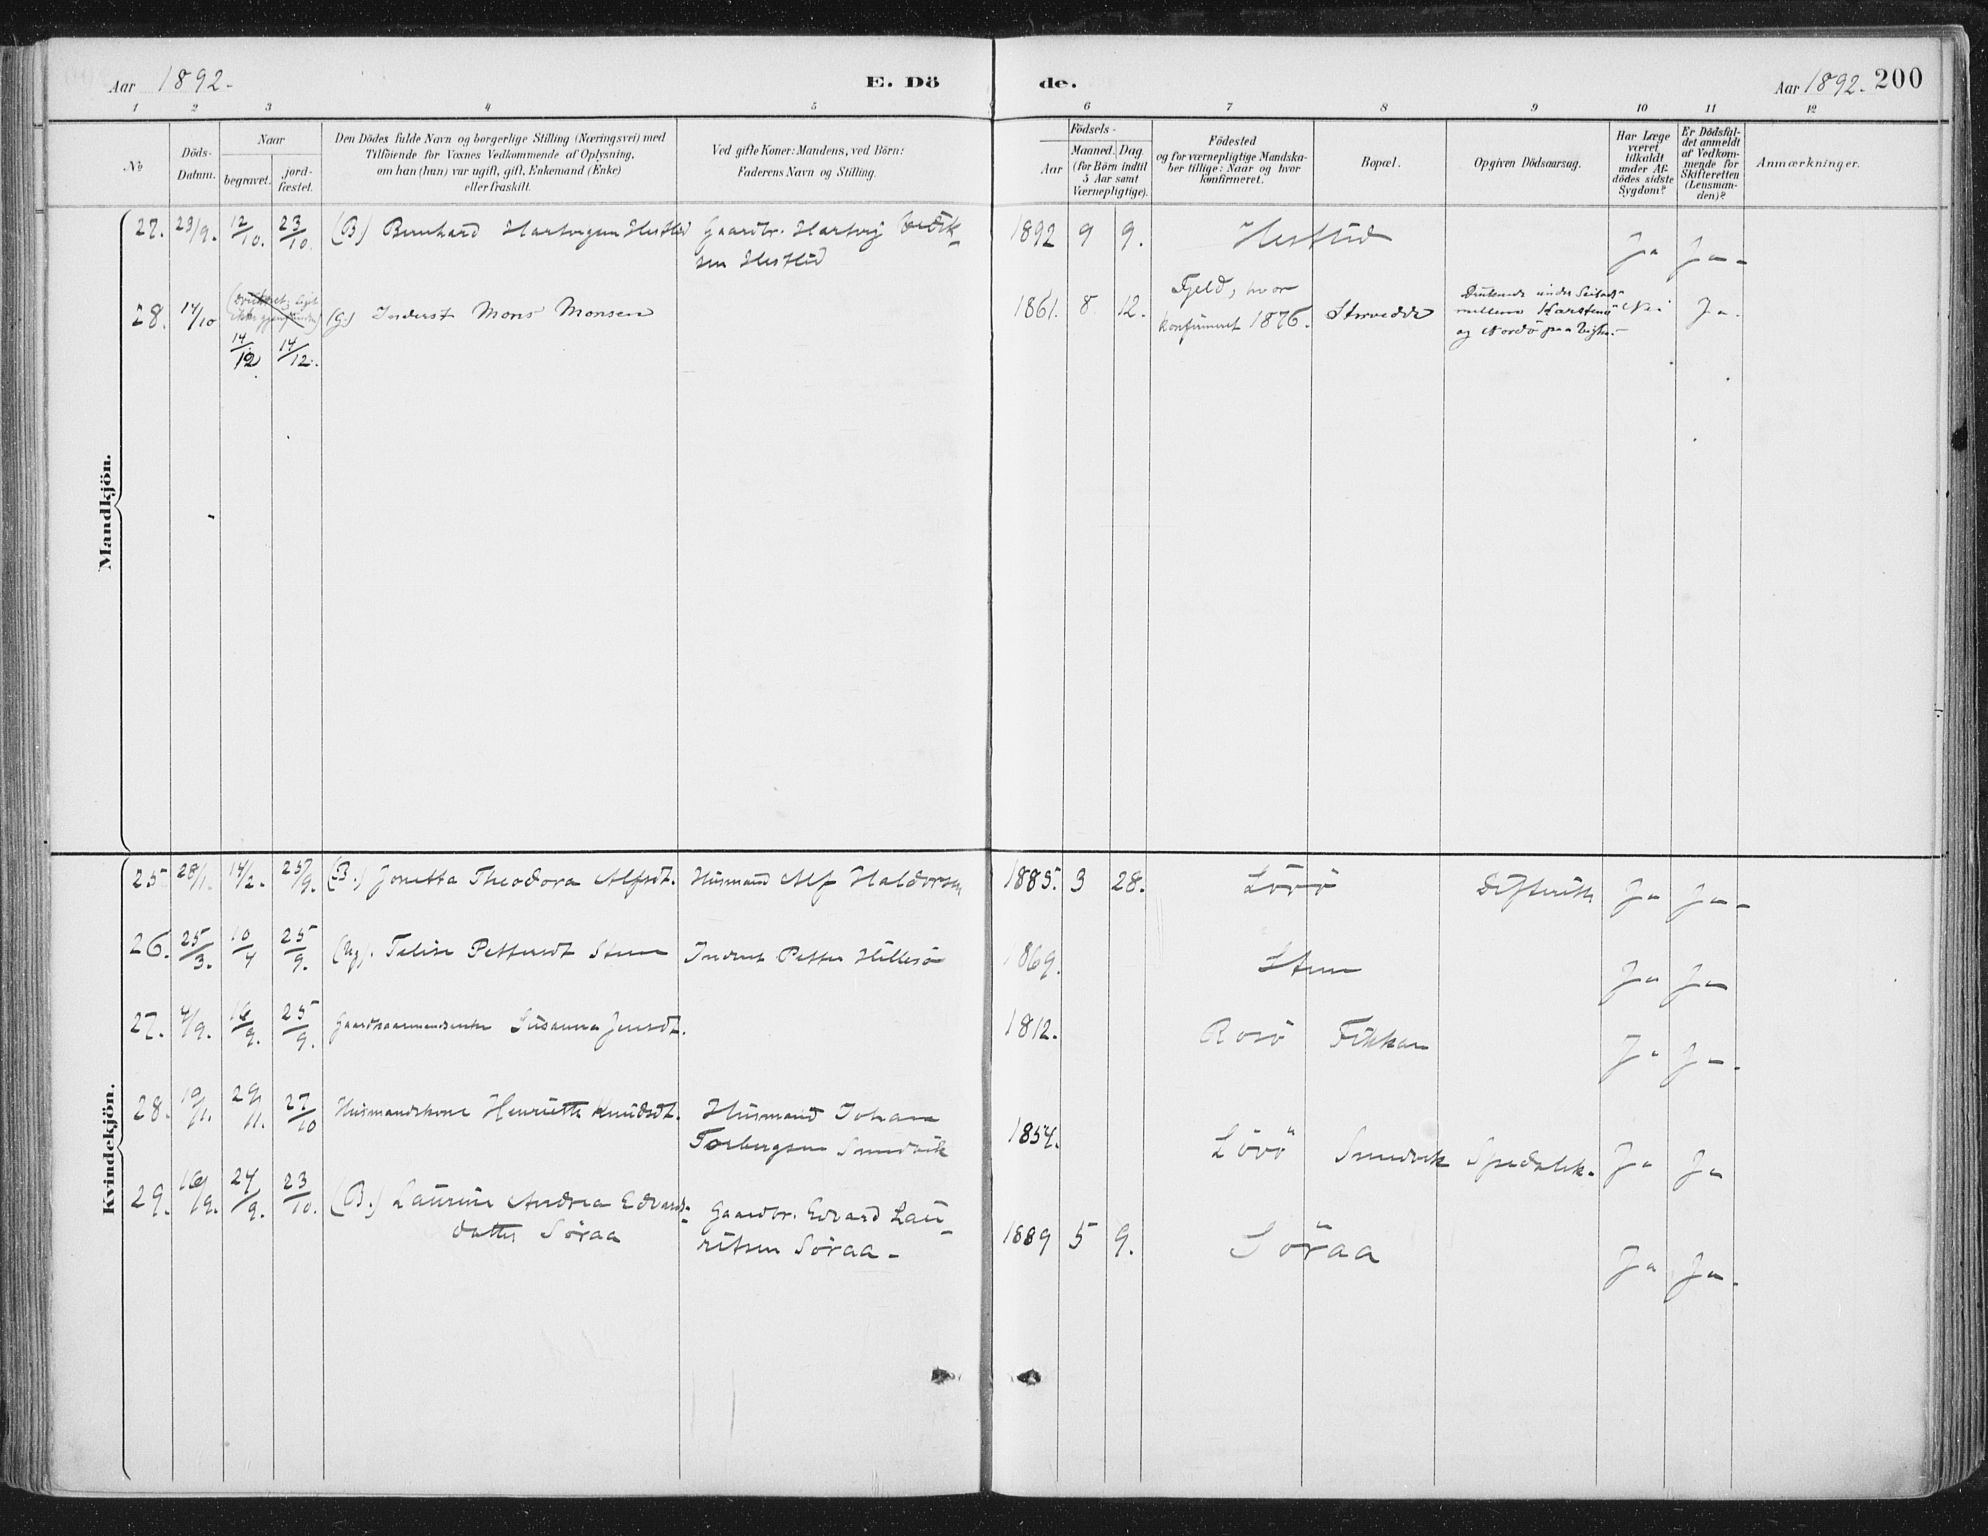 Aar 1892.
E. Dö
de.
Aar 1892. 200
1 2 3 4 5 6 7 8 9 10 11 12
№
Döds-
Datum.
Naar
begravet.
jord-
fæstet.
Den Dödes fulde Navn og borgerlige Stilling (Næringsvei) med
Tilföiende for Voxnes Vedkommende af Oplysning,
om han (hun) var ugift, gift, Enkemand (Enke)
eller fraskilt.
Ved gifte Koner: Mandens, ved Börn:
Faderens Navn og Stilling.
Födsels-
Aar
Maaned. Dag
(for Börn indtil
5 Aar samt
Værnepligtige).
Födested
og for værnepligtige Mandska-
ber tillige: Naar og hvor
konfirmeret.
Bopæl.
Opgiven Dödsaarsag.
Har Læge
været
tilkaldt
under Af-
dödes sidste
Sygdom?
Er Dödsfal-
det anmeldt
af Vedkom-
mende for
Skifteretten
(Lensman-
den)?
Anmærkninger.
Mandkjön.
27. 23/9. 12/10. 23/10. (B) Bernhard Hartvigsen Hestlid Gaardbr. Hartvig
sen Hestlid
1892 9 9. Hestlid Ja Ja -
28. 14/10 14/12. 14/12. (G.) Inderst Mons Monsen
1861. 8. 12. Fjeld, hvor
konfirmeret 1876. Nei Ja.
og Nordö paa
Kvindekjön.
25 28/1. 14/2. 25/9. (B.) Jonetta Theodora Alfsdt. Husmand Alf Haldorsen
1885. 3 28. Lövö Difterith Ja Ja -
26. 25/3. 10/4 25/9. (Ug). Petersdt Inderst Petter Hillesö
1869. Ja Ja
27. 4/9. 16/9. 25/9. Gaardmandsenke Susanna Jensdt.
1812. Rosö Ja Ja -
28. 19/11. 29/11. 27/10 Husmandskone Henriette Knudsdt. Husmand Johan
Torbergsen Smedvik
1854. Lövö Smedvik Spedalsk. Ja Ja
29. 16/9. 24/9. 23/10. (B.) Laurine Andrea Edvards-
datter Söraa
Gaardbr. Edvard Lau-
ritsen Söraa -
1889 5 9. Söraa Ja Ja -